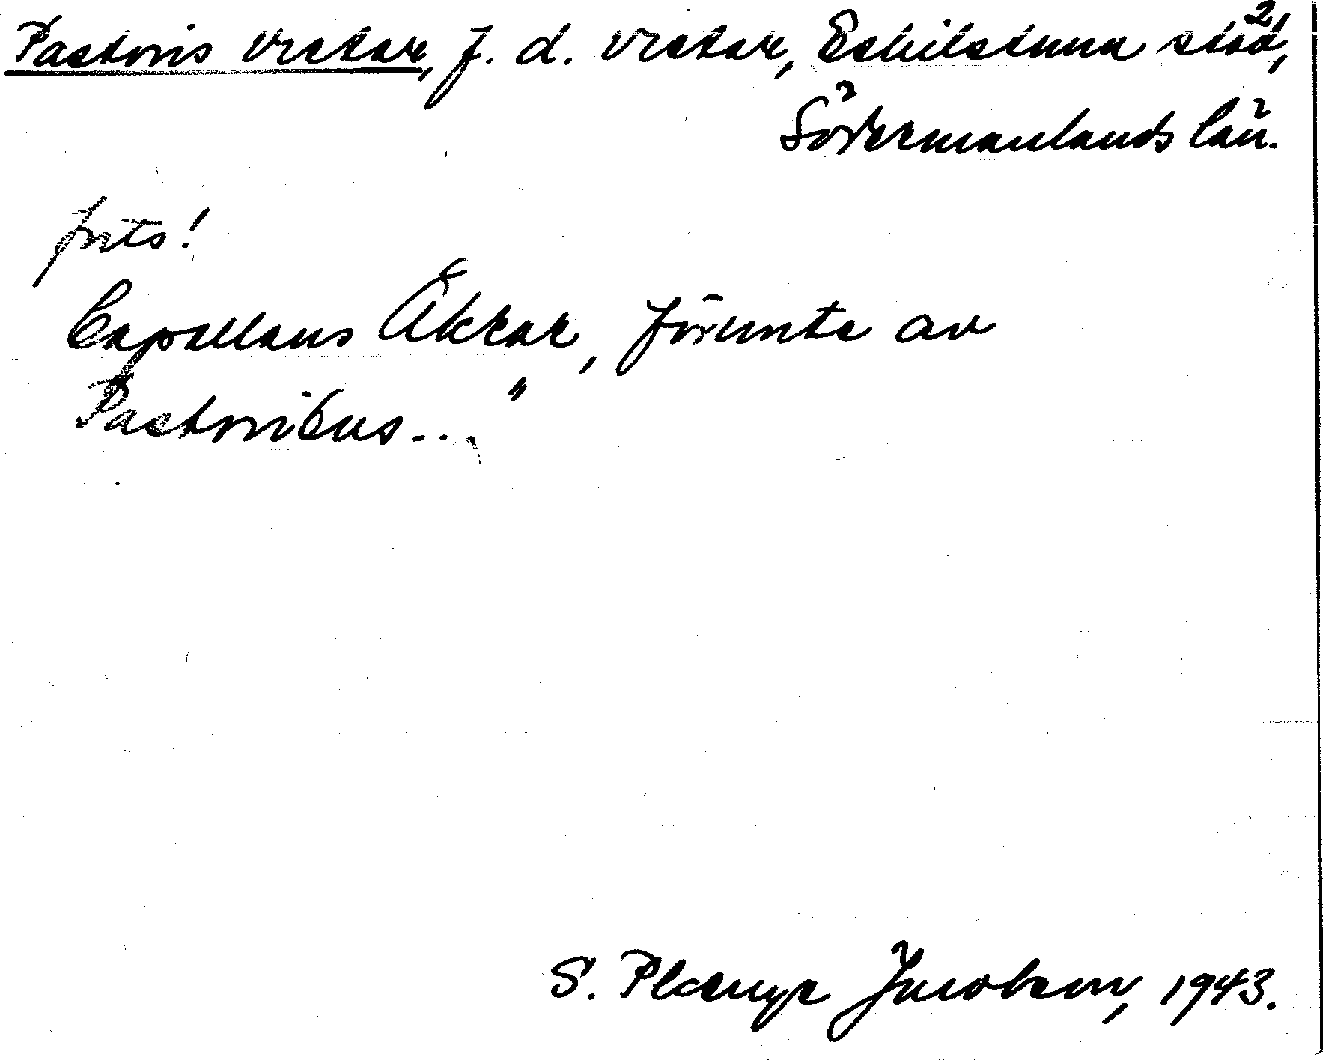 Pastoris vretar, f. d. vretar, Eskilstuna stad,
Södermanlands län.
forts!
Capellans Åkrar, förunte av
Pastoribus..."
S. Jacobson, 1943.